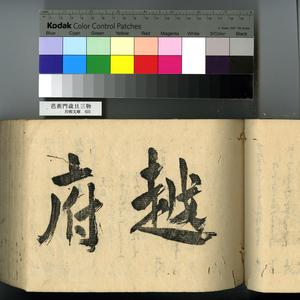 Kodak Color Control Patches
Blue Cyan Green Yellow Red Magenta White 3/Color Black
芭蕉門歳旦三物
越府